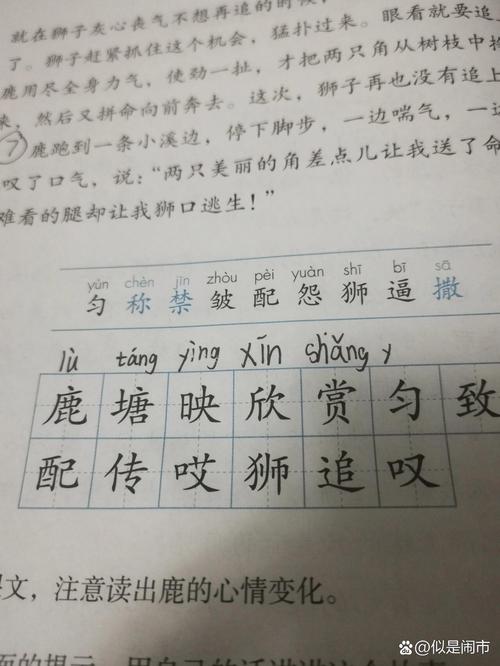 就在狮子灰心丧气不想再追的时候，
了。狮子赶紧抓住这个机会，猛扑过来。眼看就要追
鹿用尽全身力气，使劲一扯，才把两只角从树枝中
来，然后又拼命向前奔去。这次，狮子再也没有追上
⑦鹿跑到一条小溪边，停下脚步，一边喘气，一边
叹了口气，说：“两只美丽的角差点儿让我送了命
难看的腿却让我狮口逃生！”
yún chèn jīn zhòu pèi yuàn shī bī sā
匀 称 禁 皱 配 怨 狮 逼 撒
lù táng yìng xīn shǎng y
鹿 塘 映 欣 赏 匀 致
配 传 哎 狮 追 叹
课文，注意读出鹿的心情变化。
面的提示，用自己的话讲讲这个
百家号/似是闹市